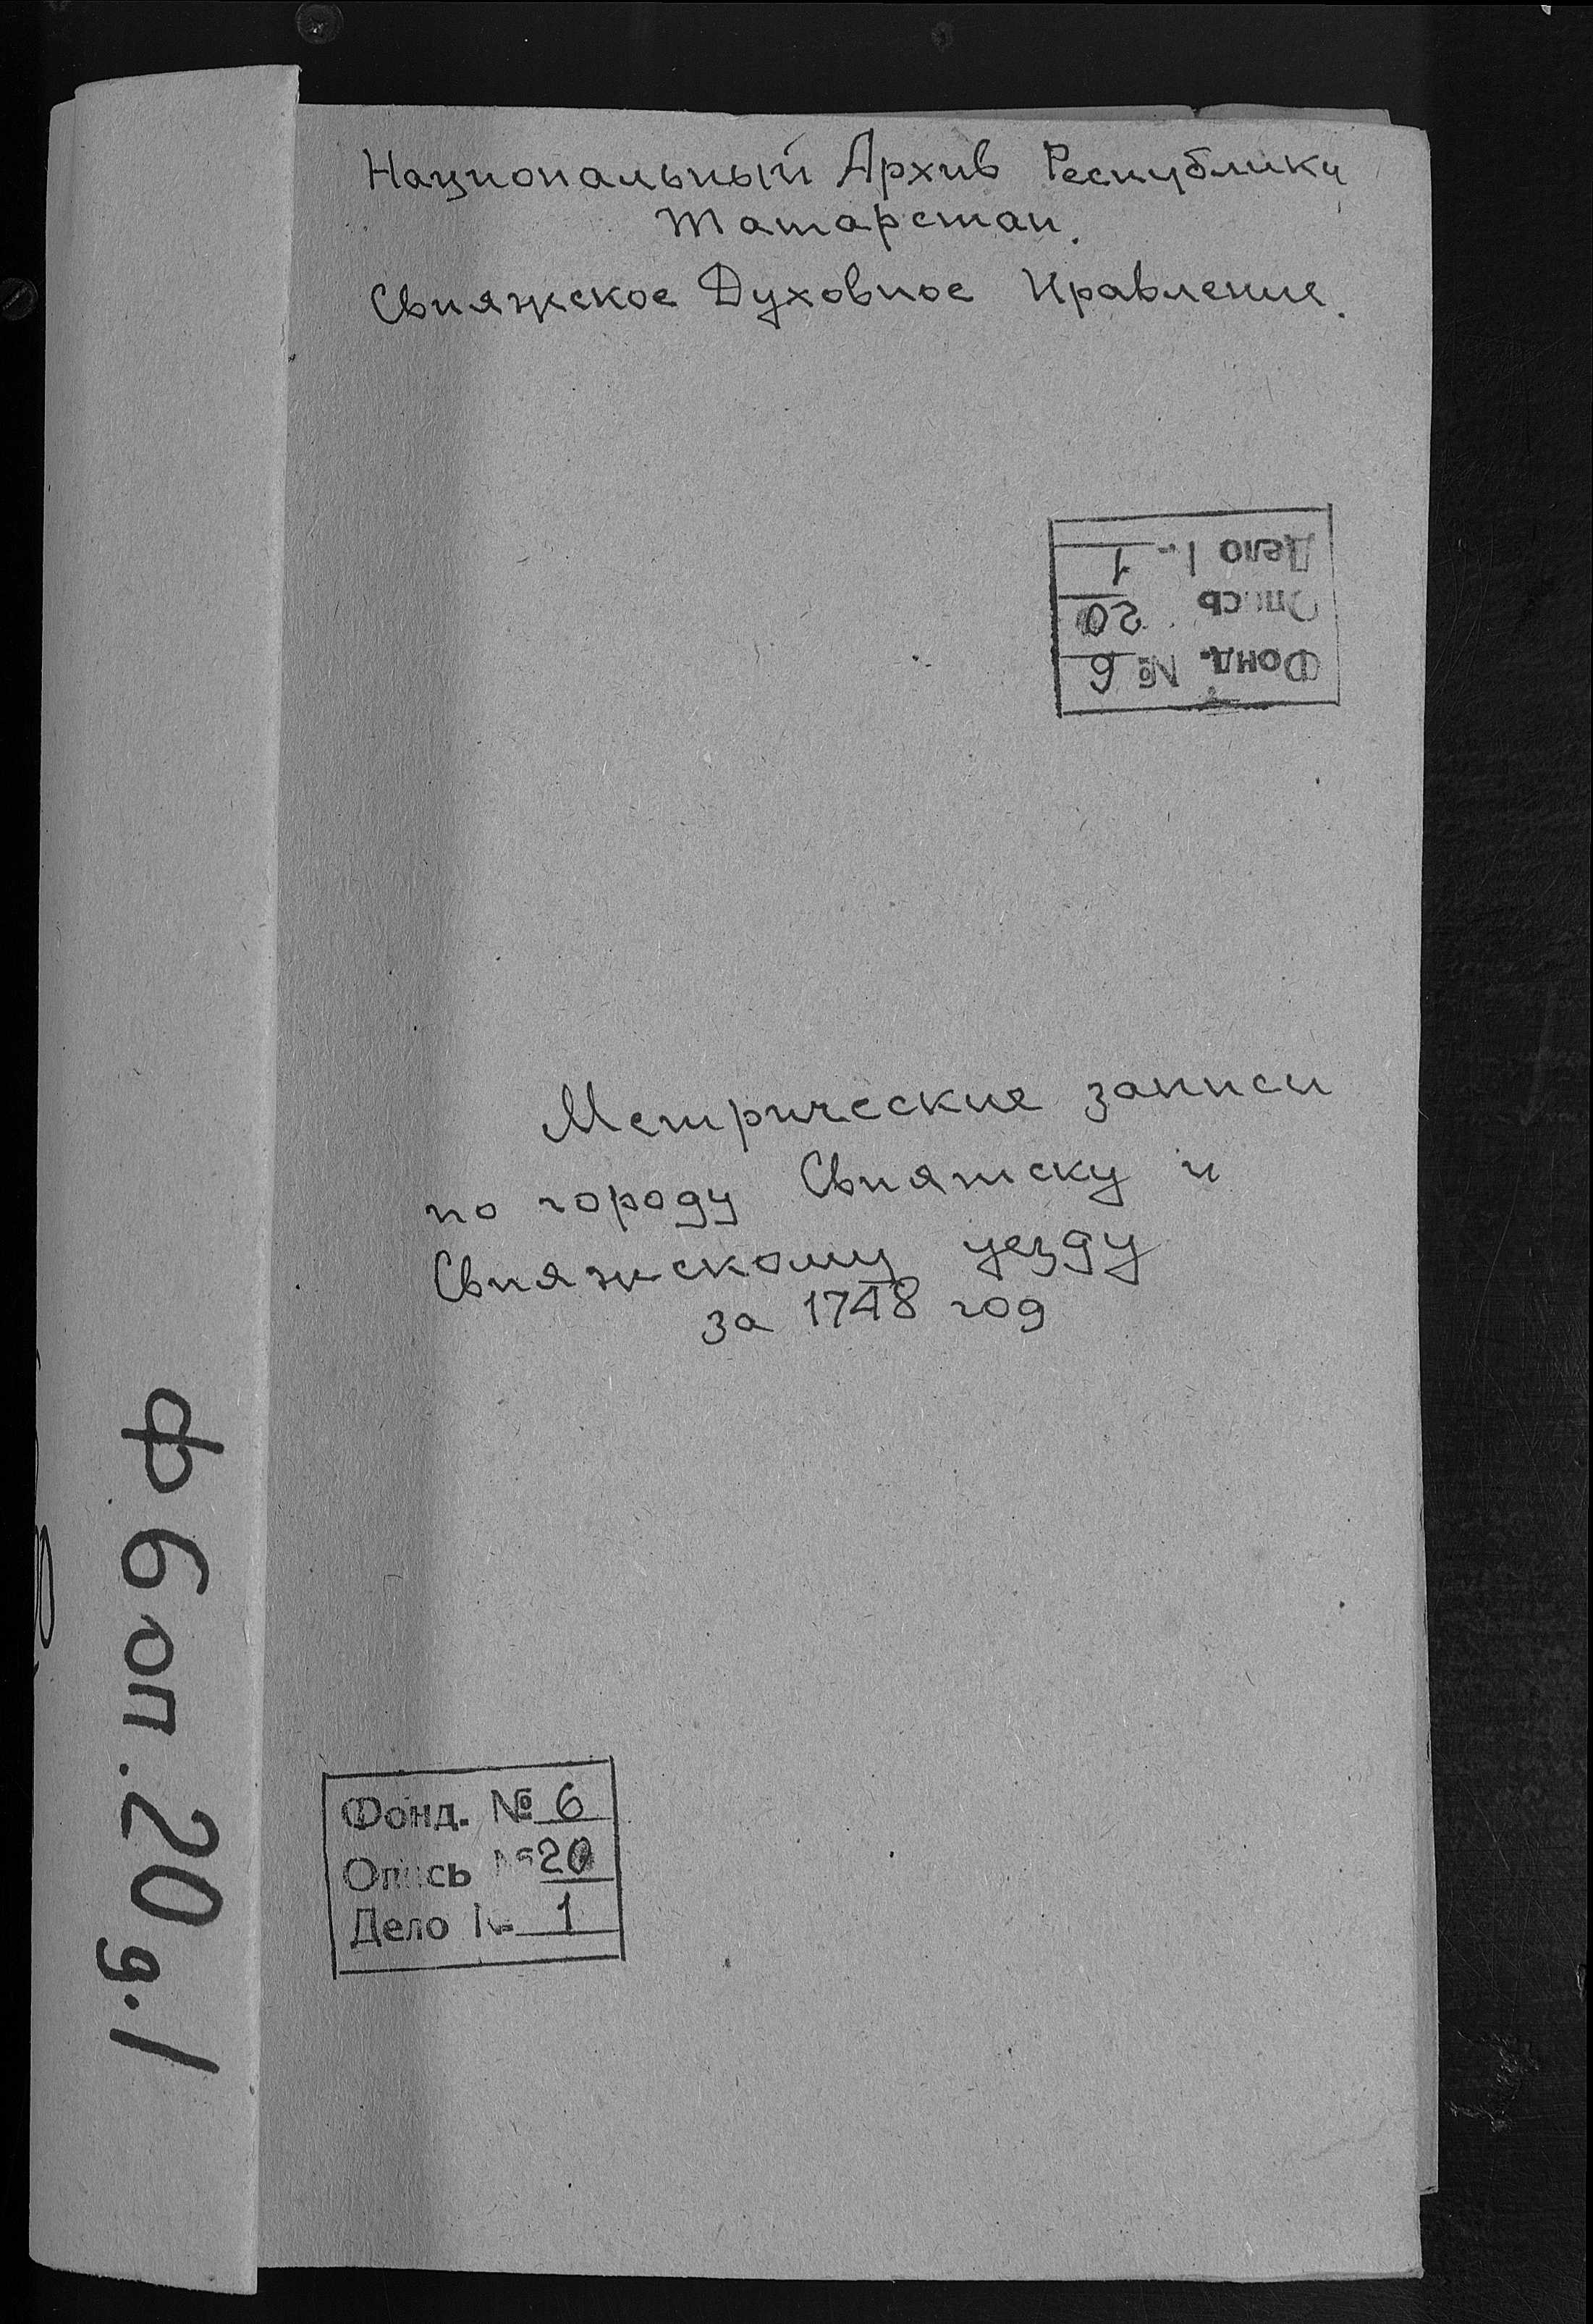 Национальный Архив Республики
Татарстан.
Свияжское Духовное Правление.
Дело 1
Опись 20
Фонд. № 6
Метрические записи
по городу Свияжску и
Свияжскому уезду
за 1748 год
ф 6 оп. 20 д. 1
Фонд. № 6
Опись № 20
Дело № 1